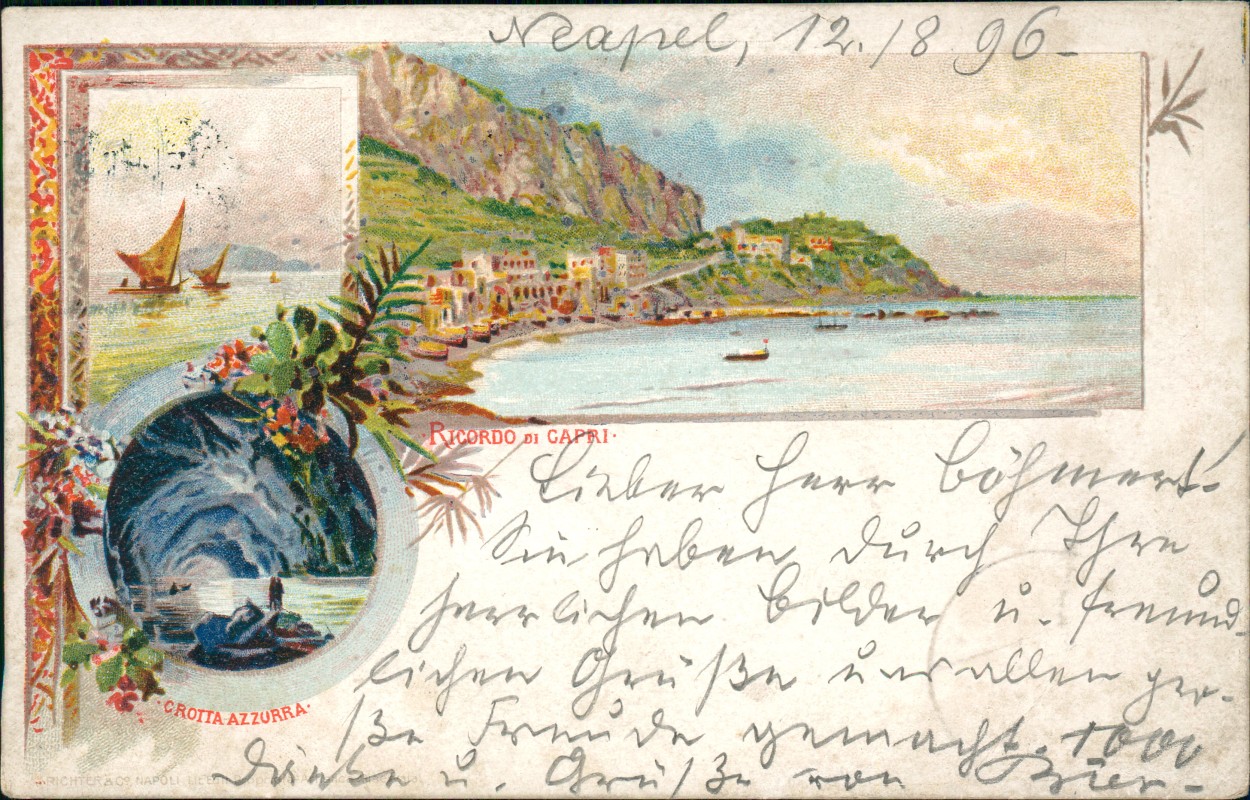 Neapel, 12./8 96.
RICORDO DI CAPRI.
Lieber Herr Böhmert!
Sie haben durch Ihre
herrlichen Bilder u. freund-
lichen Grüße uns allen gro-
ße Freude gemacht. 1000
Danke u. Grüße von
GROTTA AZZURRA.
RICHTER & Co. NAPOLI